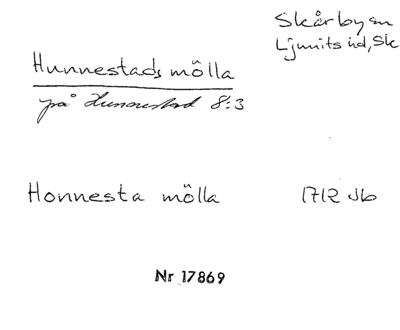 Skårby sn
Ljunits hd, Sk
Hunnestads mölla
på Hunnestad 8:3
Honnesta mölla 1712 Jb
Nr 17869